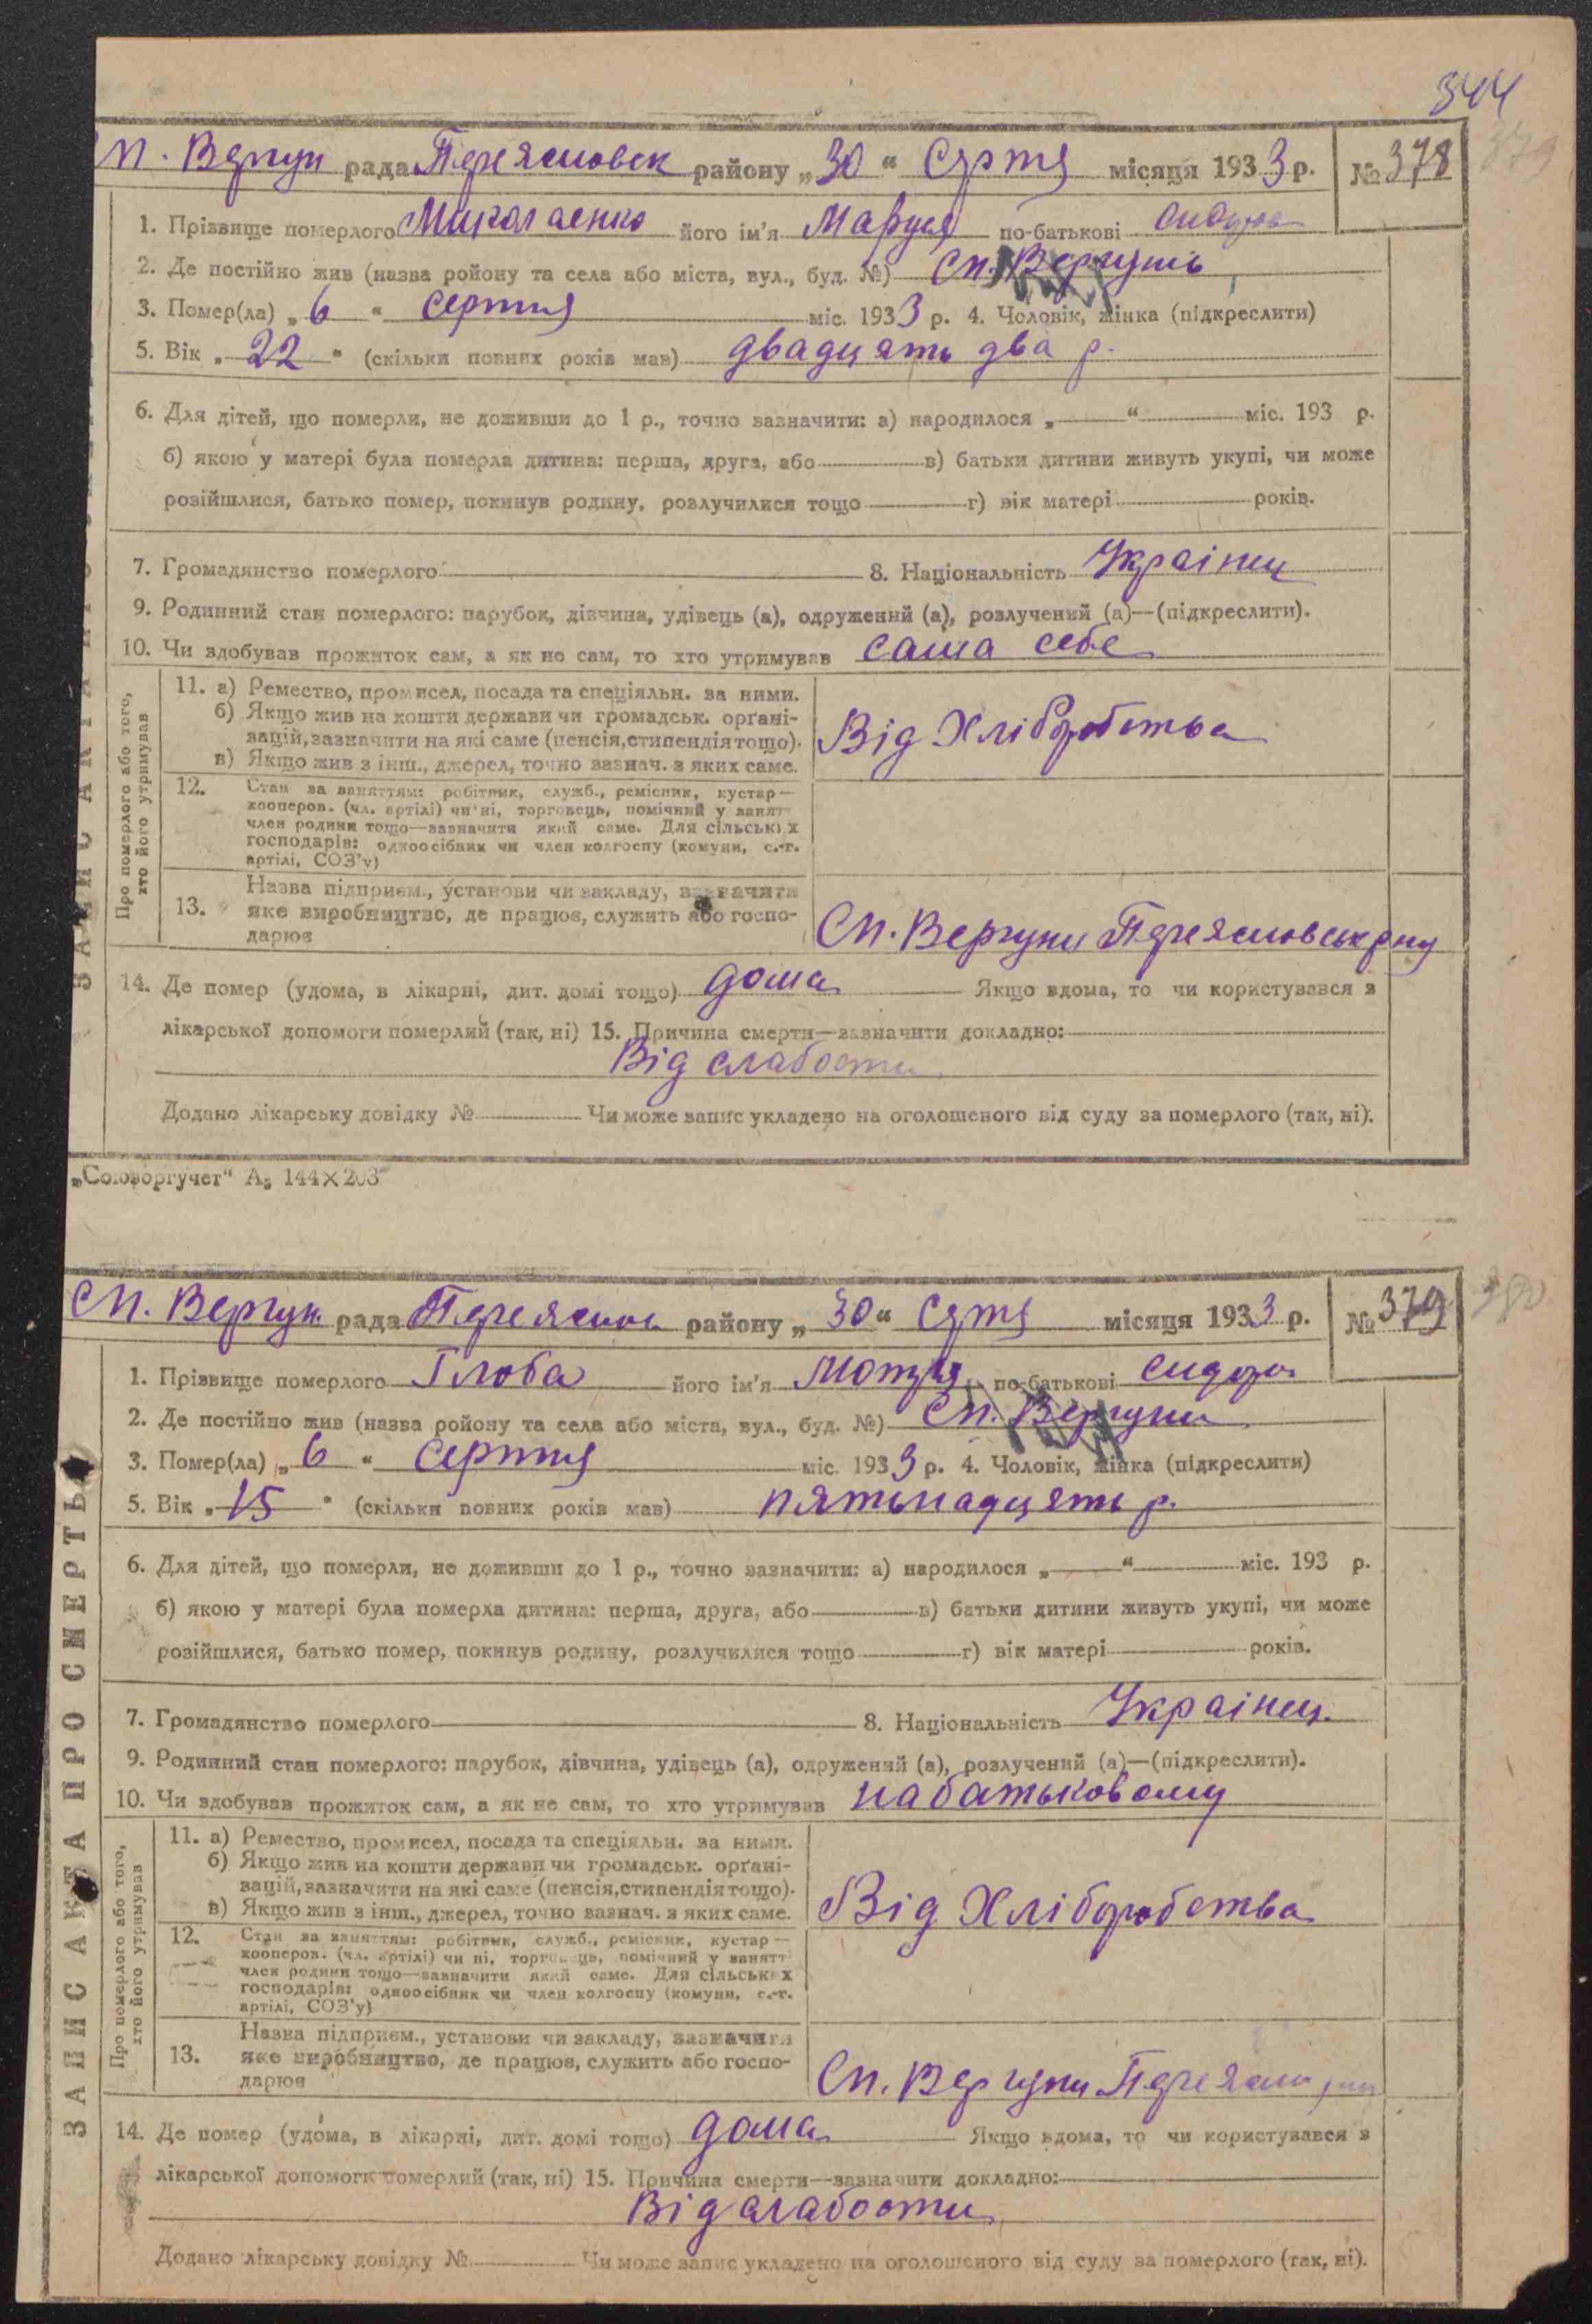 344
Сп. Вергун рада Переясловск району „30“ Серпня місяця 1933 р. № 378
1. Прізвище померлого Миколаенко його ім'я Маруся по-батькові
2. Де постійно жив (назва ройону та села або міста, вул., буд. №) Сп. Вергунь
3. Помер(ла) „6“ Серпня міс. 1933 р. 4. Чоловік, жінка (підкреслити)
5. Вік „22“ (скільки повних років мав) двадцять два р.
6. Для дітей, що померли, не доживши до 1 р., точно зазначити: а) народилося „ “ міс. 193 р.
б) якою у матері була померла дитина: перша, друга, або в) батьки дитини живуть укупі, чи може
розійшлися, батько помер, покинув родину, розлучилися тощо г) вік матері років.
7. Громадянство померлого 8. Національність Украінец
9. Родинний стан померлого: парубок, дівчина, удівець (а), одружений (а), розлучений (а)—(підкреслити).
10. Чи здобував прожиток сам, а як не сам, то хто утримував сама себе
Про померлого або того, хто його утримував
11. а) Ремество, промисел, посада та спеціяльн. за ними.
б) Якщо жив на кошти держави чи громадськ. орґані-
зацій, зазначити на які саме (пенсія, стипендія тощо).
в) Якщо жив з інш., джерел, точно зазнач. з яких саме.
Від Хліборобства
12. Стан за заняттям: робітник, служб., ремісник, кустар—
кооперов. (чл. артілі) чи ні, торговець, помічний у занятт
член родини тощо—зазначити який саме. Для сільських
господарів: одноосібник чи член колгоспу (комуни, с.-г.
артілі, СОЗ'у)
13. Назва підприєм., установи чи закладу, зазначити
яке виробництво, де працює, служить або госпо-
дарює
Сп. Вергуни Переясловськ рну
14. Де помер (удома, в лікарні, дит. домі тощо) дома Якщо вдома, то чи користувався з
лікарської допомоги померлий (так, ні) 15. Причина смерти—зазначити докладно:
Від слабости
Додано лікарську довідку № Чи може запис укладено на оголошеного від суду за померлого (так, ні).
„Союзоргучет“ А5 144×203
Сп. Вергун. рада району „30“ місяця 1933 р. № 379
1. Прізвище померлого Глоба його ім'я Мотря по-батькові Сидоро
2. Де постійно жив (назва ройону та села або міста, вул., буд. №) Сп. Вергуни
3. Помер(ла) „6“ Серпня міс. 1933 р. 4. Чоловік, жінка (підкреслити)
5. Вік „15“ (скільки повних років мав) пятьнадцять р.
6. Для дітей, що померли, не доживши до 1 р., точно зазначити: а) народилося „ “ міс. 193 р.
б) якою у матері була померла дитина: перша, друга, або в) батьки дитини живуть укупі, чи може
розійшлися, батько помер, покинув родину, розлучилися тощо г) вік матері років.
7. Громадянство померлого 8. Національність Украінец.
9. Родинний стан померлого: парубок, дівчина, удівець (а), одружений (а), розлучений (а)—(підкреслити).
10. Чи здобував прожиток сам, а як не сам, то хто утримував на батьковому
ЗАПИС АКТА ПРО СМЕРТЬ
Про померлого або того, хто його утримував
11. а) Ремество, промисел, посада та спеціяльн. за ними.
б) Якщо жив на кошти держави чи громадськ. орґані-
зацій, зазначити на які саме (пенсія, стипендія тощо).
в) Якщо жив з інш., джерел, точно зазнач. з яких саме.
Від Хліборобства
12. Стан за заняттям: робітник, служб., ремісник, кустар—
кооперов. (чл. артілі) чи ні, торговець, помічний у занятт
член родини тощо—зазначити який саме. Для сільських
господарів: одноосібник чи член колгоспу (комуни, с.-г.
артілі, СОЗ'у)
13. Назва підприєм., установи чи закладу, зазначити
яке виробництво, де працює, служить або госпо-
дарює
Сп. Вергуни
14. Де помер (удома, в лікарні, дит. домі тощо) дома Якщо вдома, то чи користувався з
лікарської допомоги померлий (так, ні) 15. Причина смерти—зазначити докладно:
Від слабости
Додано лікарську довідку № Чи може запис укладено на оголошеного від суду за померлого (так, ні).